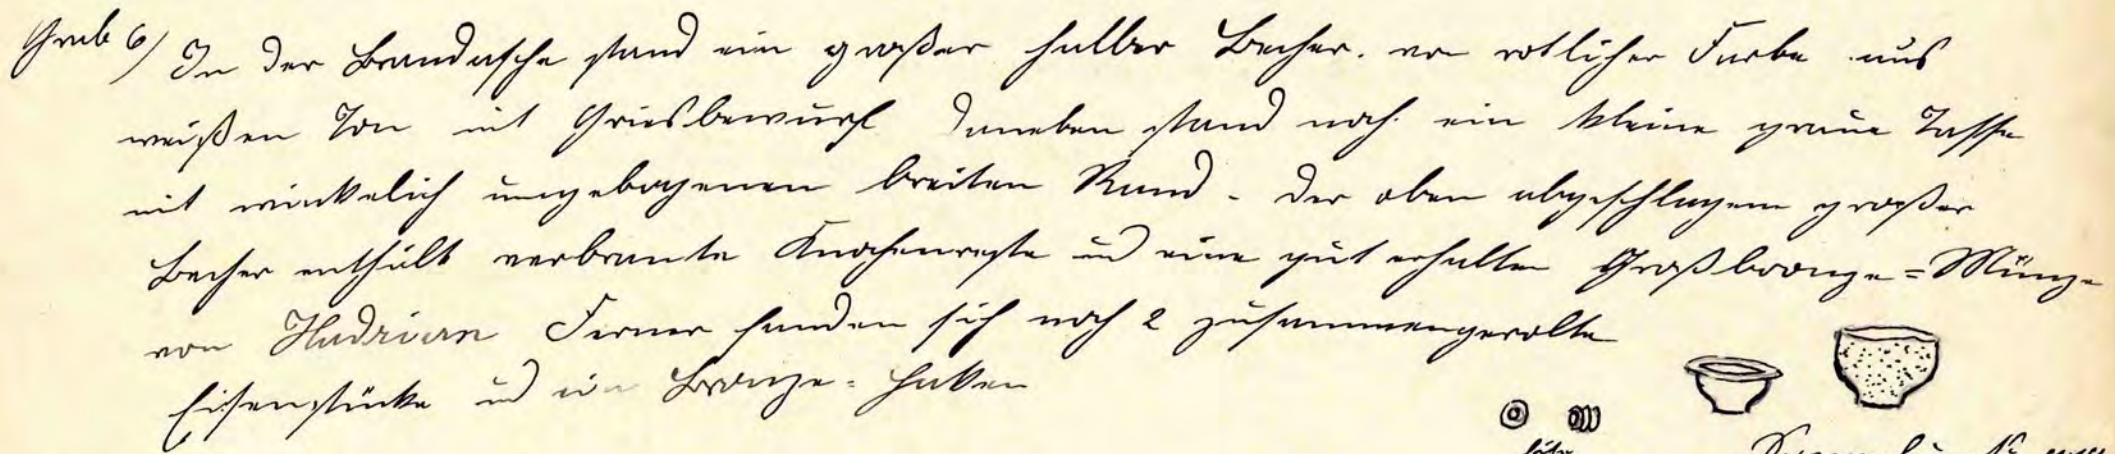 Grab 6) In der Brandasche stand ein großer halber Becher. von rotlicher Farbe aus
weißen Ton mit Griesbewurf daneben stand noch ein kleine graue Tasse
mit winkelich umgebogenen breiten Rand. Der oben abgeschlagene großer
Becher enthält verbrannte Knochenreste und eine gut erhalten Großbronze=Münze
von Hadrian Ferner fanden sich noch 2 zusammengerollte
Eisenstücke und ein Bronze=Haken